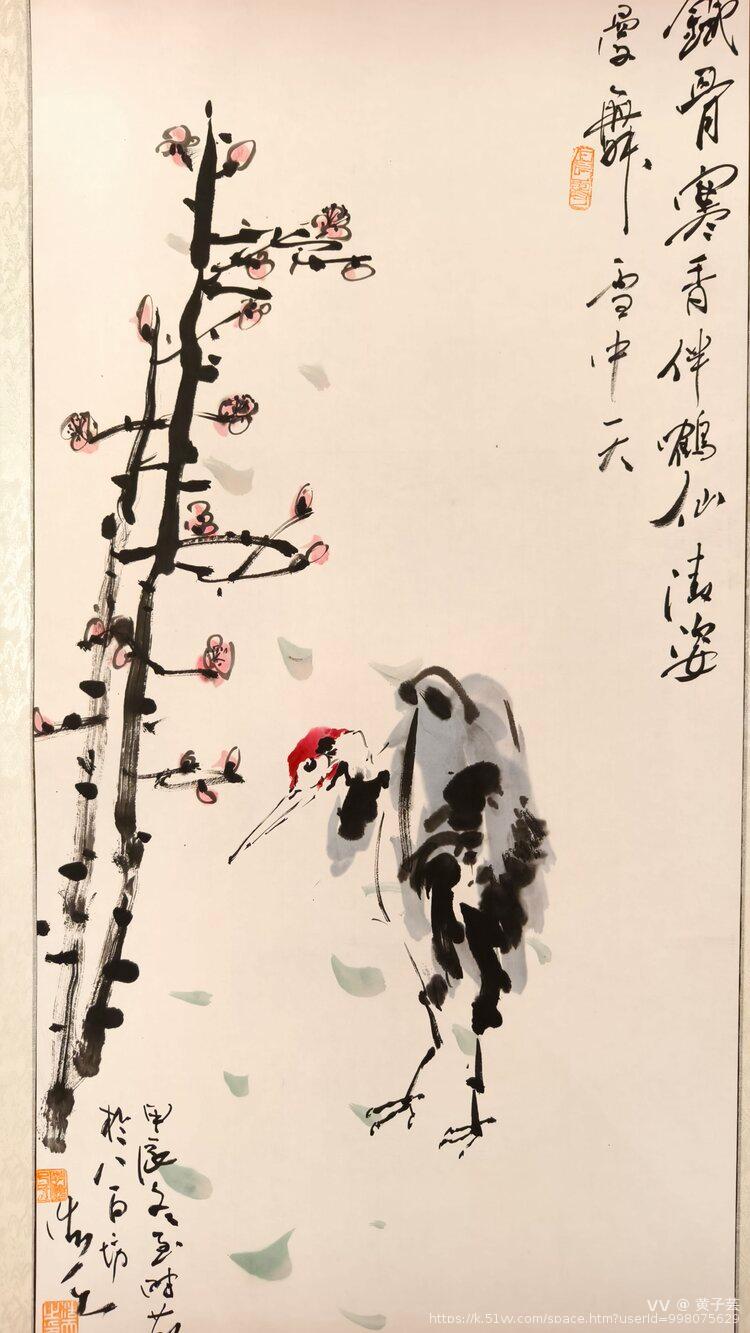 鐵骨寒香伴鶴仙清姿
曼舞雪中天
甲辰冬至時於
於八百坊
VV @ 黄子芸
https://k.51vv.com/space.htm?userId=998075629